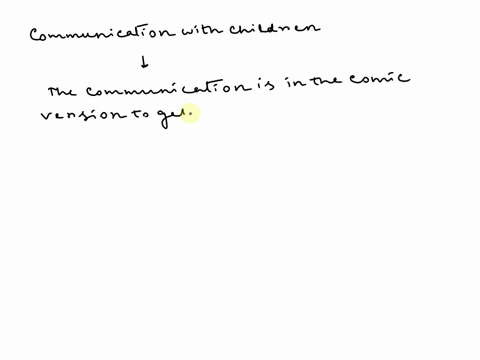 Communication with children
↓
The communication is in the comic
version to get